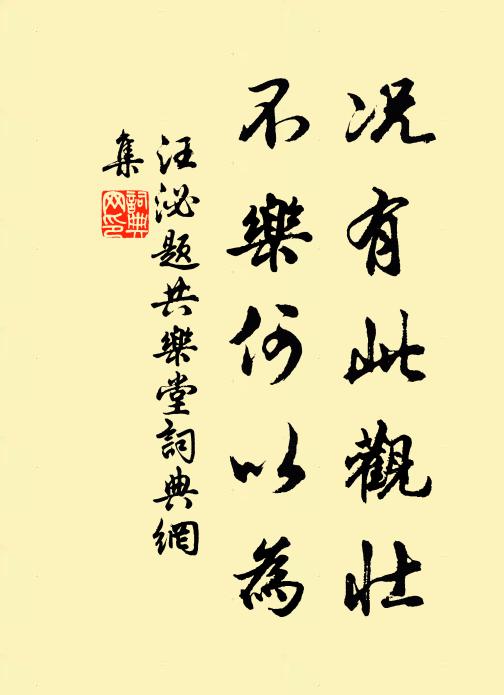 况有此觀壯
不樂何以為
汪泌題共樂堂詞典網
集
詞典
网印